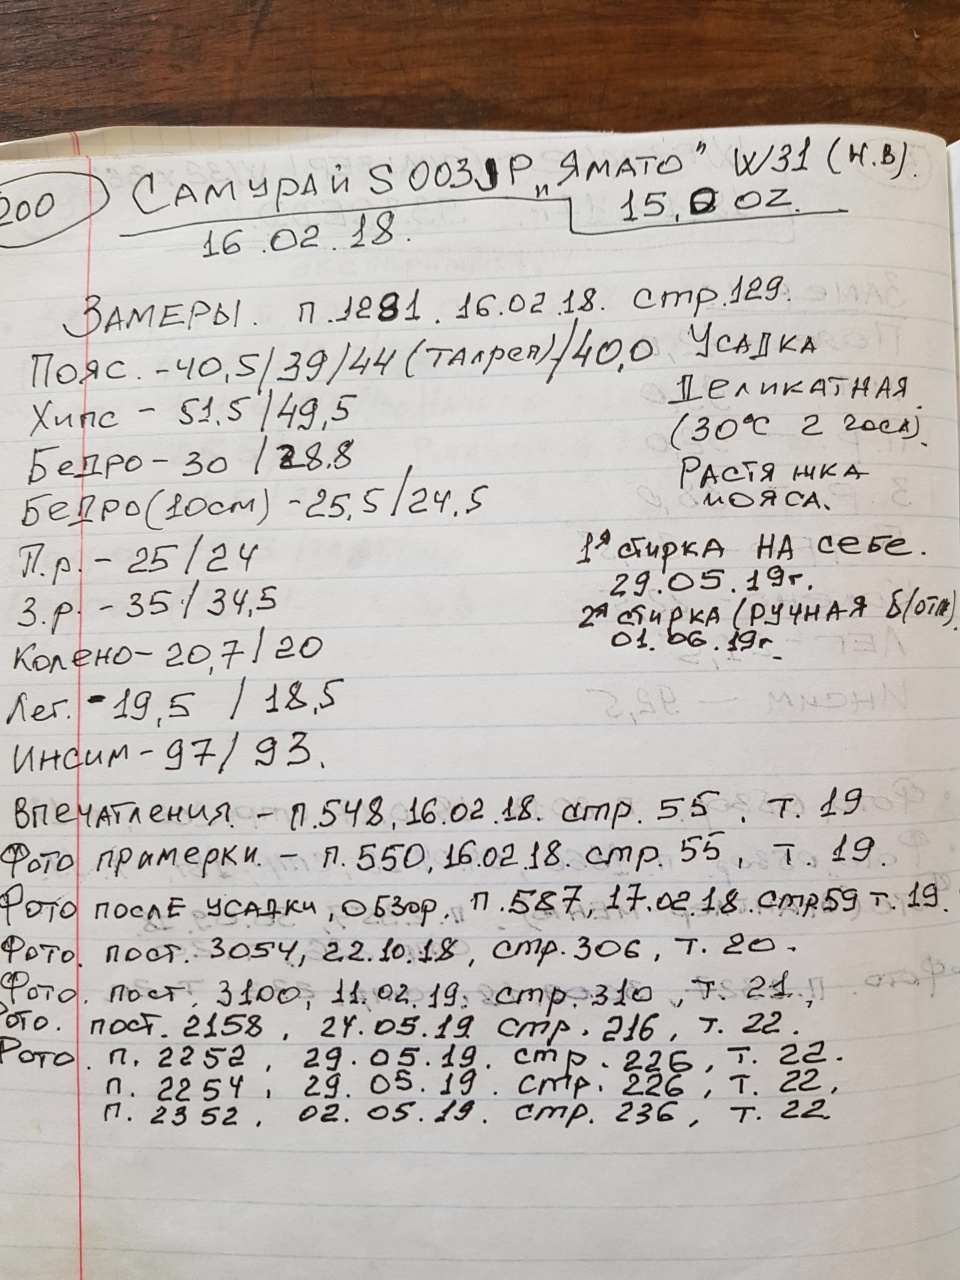 200
Самурай S003JP „Ямато" W31 (Н.В).
16.02.18.
15.02.
Замеры. п.1281. 16.02.18. стр.129.
Пояс. - 40,5/39/44 (талреп)/40,0
Хипс - 51,5/49,5
Бедро - 30 / 28.8
Бедро (10см) - 25,5/24,5
П.р. - 25/24
З.р. - 35/34,5
Колено - 20,7/20
Лег. - 19,5 / 18,5
Инсим - 97/ 93.
Усадка
Деликатная.
(30°C 2 часа).
Растяжка
пояса.
1я стирка на себе.
29.05.19г.
2я стирка (ручная б/отж).
01.06.19г.
Впечатления. - п.548, 16.02.18. стр. 55, т. 19
Фото примерки. - п.550, 16.02.18. стр. 55, т. 19.
Фото после усадки, обзор. п.587, 17.02.18. стр59 т. 19.
Фото. пост. 3054, 22.10.18, стр. 306, т. 20.
Фото. пост. 3100, 11.02.19. стр. 310, т. 21.,
Фото. пост. 2158, 24.05.19 стр. 216, т. 22.
Фото. п. 2252, 29.05.19. стр. 226, т. 22.
п. 2254, 29.05.19. стр. 226, т. 22,
п. 2352, 02.05.19. стр. 236, т. 22